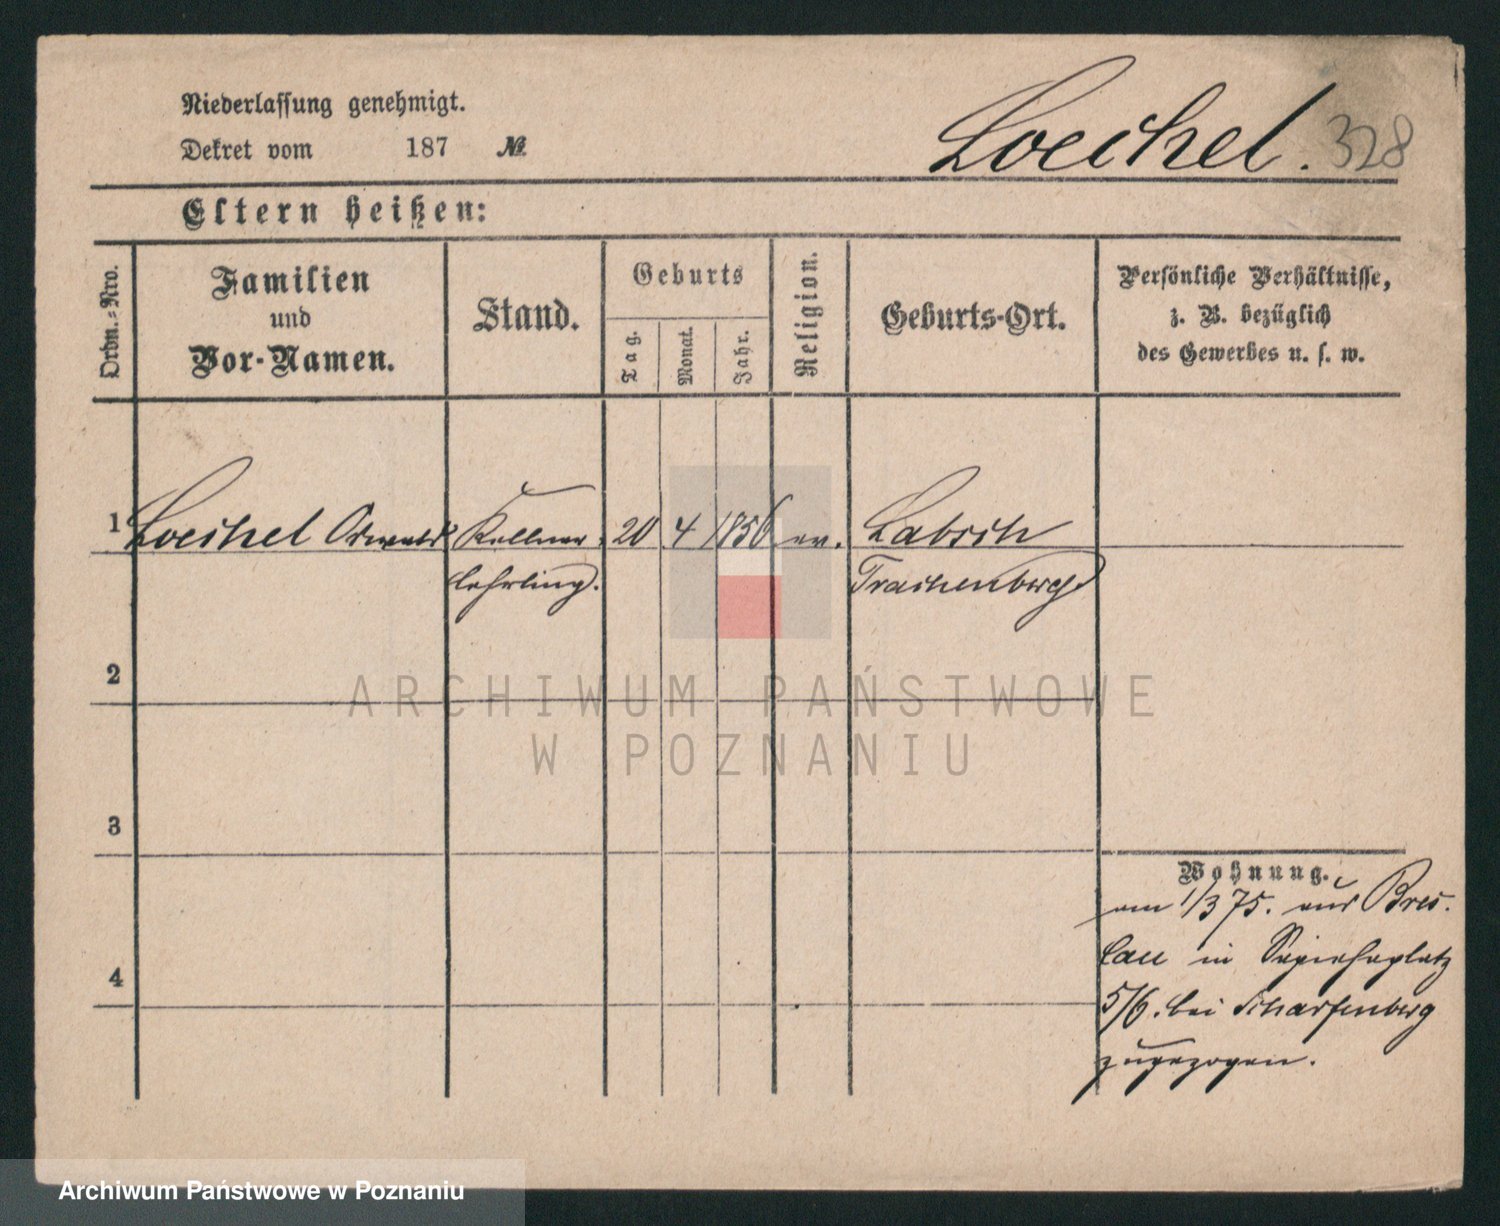 Niederlassung genehmigt.
Dekret vom 187 №
Loechel. 328
Eltern heißen:
Ordn.-Nro.
Familien
und
Vor-Namen.
Stand.
Geburts
Tag.
Monat.
Jahr.
Religion.
Geburts-Ort.
Persönliche Verhältnisse,
z. B. bezüglich
des Gewerbes u. s. w.
1 Loechel Oswald Kellner 20 4 1856 ev. Labsch
lehrling. Trachenberg
2
3
4
Wohnung.
am 1/3 75. aus Bres-
lau in Sapiehaplatz
5/6. bei Scharfenberg
zugezogen.
ARCHIWUM PAŃSTWOWE
W POZNANIU
Archiwum Państwowe w Poznaniu